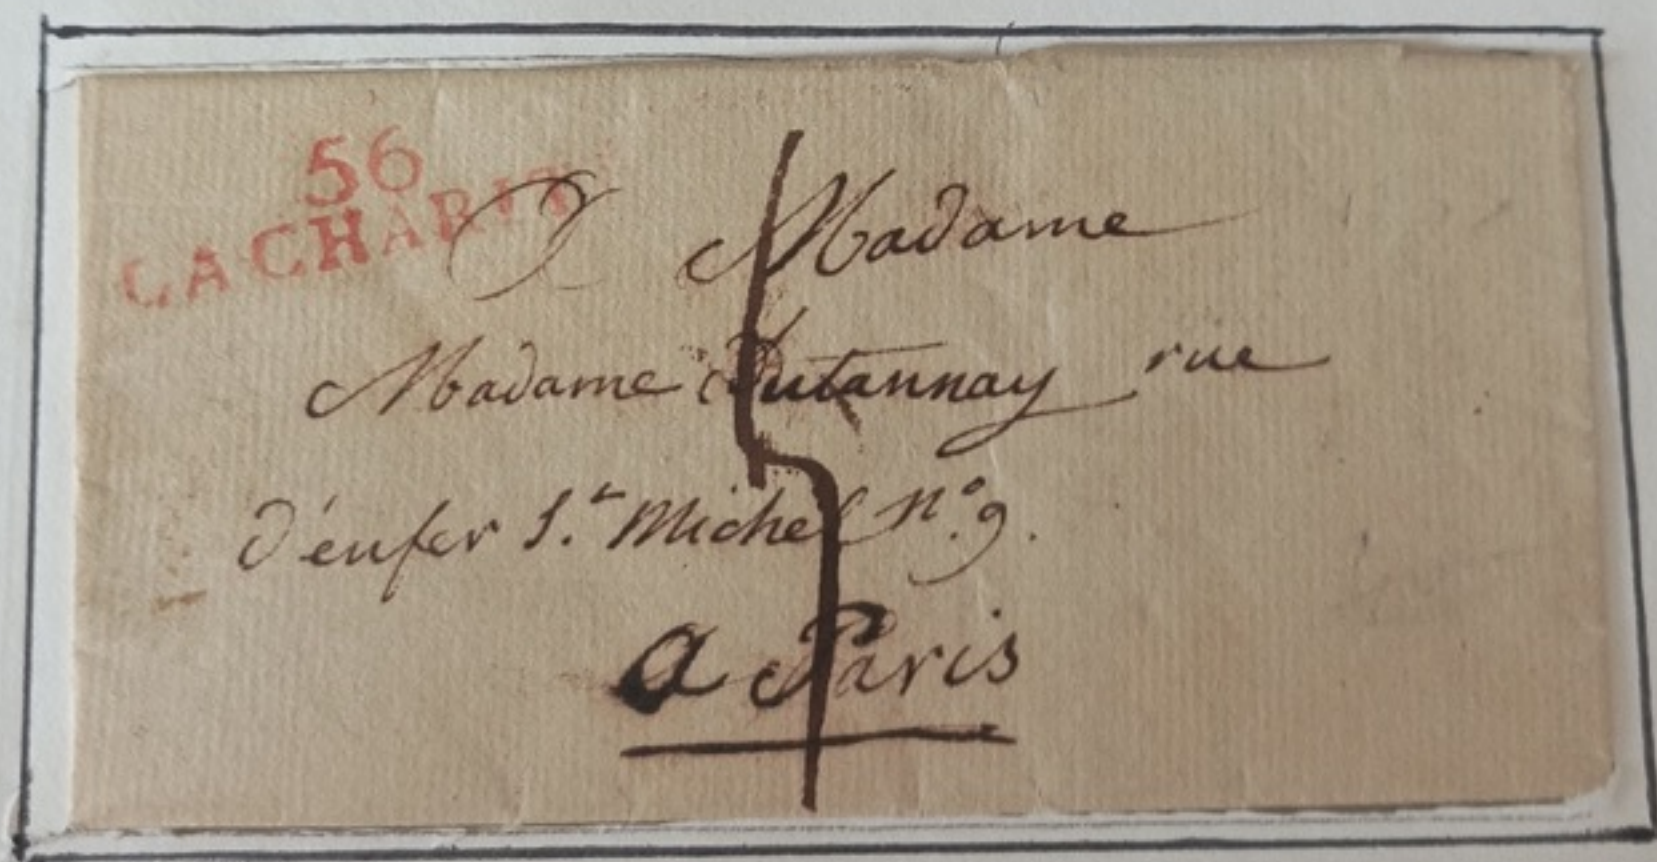 56
LA CHARITÉ
A Madame
Madame Dutannay rue
d'enfer S.t Michel n.o 9.
a Paris